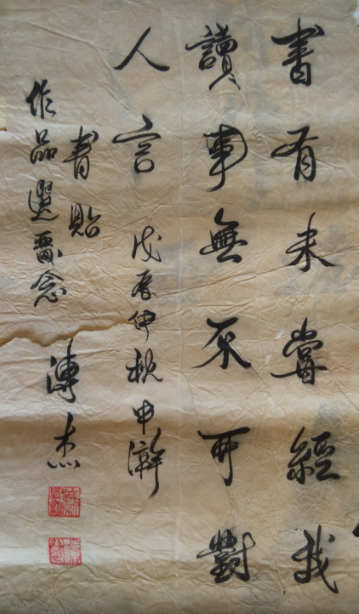 書有未嘗經我
讀事無不可對
人言 戊辰仲秋申
書
作品選留念
溥杰